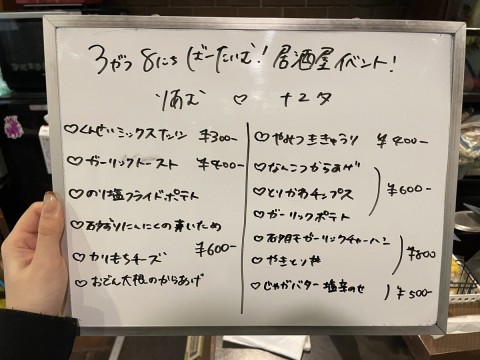 3がつ8にち ばーたいむ! 居酒屋イベント!
りあむ ♡ ナユタ
♡くんせいミックスナッツ ¥300-
♡ガーリックトースト ¥400-
♡のり塩フライドポテト
♡砂ずりにんにくの芽いため
¥600-
♡カリもちチーズ
♡おでん大根のからあげ
♡やみつききゅうり ¥400-
♡なんこつからあげ
♡とりかわチップス ¥600-
♡ガーリックポテト
♡明太ガーリックチャーハン
¥800
♡やきとり丼
♡じゃがバター塩辛のせ ¥500-